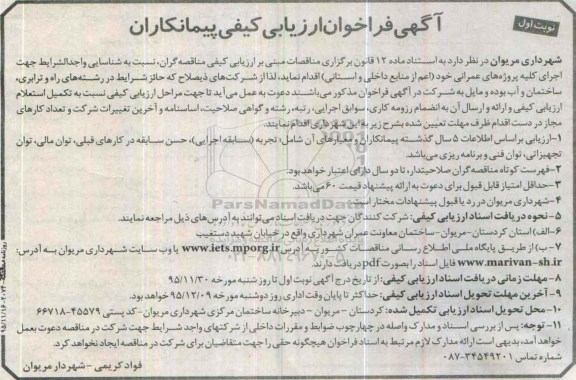 نوبت اول
آگهی فراخوان ارزیابی کیفی پیمانکاران
شهرداری مریوان در نظر دارد به استناد ماده ۱۲ قانون برگزاری مناقصات مبنی بر ارزیابی کیفی مناقصه گران، نسبت به شناسایی واجدالشرایط جهت
اجرای کلیه پروژه‌های عمرانی خود (اعم از منابع داخلی و استانی) اقدام نماید، لذا از شرکت‌های ذیصلاح که حائز شرایط در رشته‌های راه و ترابری،
ساختمان و آب بوده و مایل به شرکت در آگهی فراخوان مذکور می‌باشند دعوت به عمل می‌آید تا جهت مراحل ارزیابی کیفی نسبت به تکمیل استعلام
ارزیابی کیفی و ارائه و ارسال آن به انضمام رزومه کاری، سوابق اجرایی، رتبه، رشته و گواهی صلاحیت، اساسنامه و آخرین تغییرات شرکت و تعداد کارهای
مجاز در دست اقدام ظرف مهلت تعیین شده بشرح زیر به این شهرداری اقدام نمایند.
۱-ارزیابی براساس اطلاعات ۵ سال گذشته پیمانکاران و معیارهای آن شامل: تجربه (سابقه اجرایی)، حسن سابقه در کارهای قبلی، توان مالی، توان
تجهیزاتی، توان فنی و برنامه ریزی می‌باشد.
۲-فهرست کوتاه مناقصه‌گران صلاحیتدار، تا دو سال دارای اعتبار خواهد بود.
۳-حداقل امتیاز قابل قبول برای دعوت به ارائه پیشنهاد قیمت ۶۰ می‌باشد.
۴-شهرداری مریوان در رد یا قبول پیشنهادات مختار است.
۵- نحوه دریافت اسناد ارزیابی کیفی: شرکت کنندگان جهت دریافت اسناد می‌توانند به آدرس‌های ذیل مراجعه نمایند.
۶-الف) استان کردستان-مریوان-ساختمان معاونت عمران شهرداری واقع در خیابان شهید دستغیب
۷-ب) از طریق پایگاه ملی اطلاع رسانی مناقصات کشور به آدرس www.iets.mporg.ir یا وب سایت شهرداری مریوان به آدرس:
www.marivan-sh.ir فایل اسناد را بصورت pdf دریافت دارند.
۸- مهلت زمانی دریافت اسناد ارزیابی کیفی: از تاریخ درج آگهی نوبت اول تا روز شنبه مورخه ۹۵/۱۱/۳۰
۹- آخرین مهلت تحویل اسناد ارزیابی کیفی: حداکثر تا پایان وقت اداری روز دوشنبه مورخه ۹۵/۱۲/۰۹ خواهد بود.
۱۰- محل تحویل اسناد ارزیابی تکمیل شده: کردستان - مریوان - دبیرخانه ساختمان مرکزی شهرداری مریوان - کد پستی ۴۵۵۷۹-۶۶۷۱۸
۱۱- توجه: پس از بررسی اسناد و مدارک واصله در چهارچوب ضوابط و مقررات داخلی از شرکتهای واجد شرایط جهت شرکت در مناقصه دعوت بعمل
خواهد آمد، بدیهی است ارائه مدارک لازم مرتبط به اسناد فراخوان هیچگونه حقی را جهت متقاضیان برای شرکت در مناقصه ایجاد نخواهد کرد.
شماره تماس ۳۴۵۴۹۲۰۱-۰۸۷
فواد کریمی - شهردار مریوان
ParsNamadData